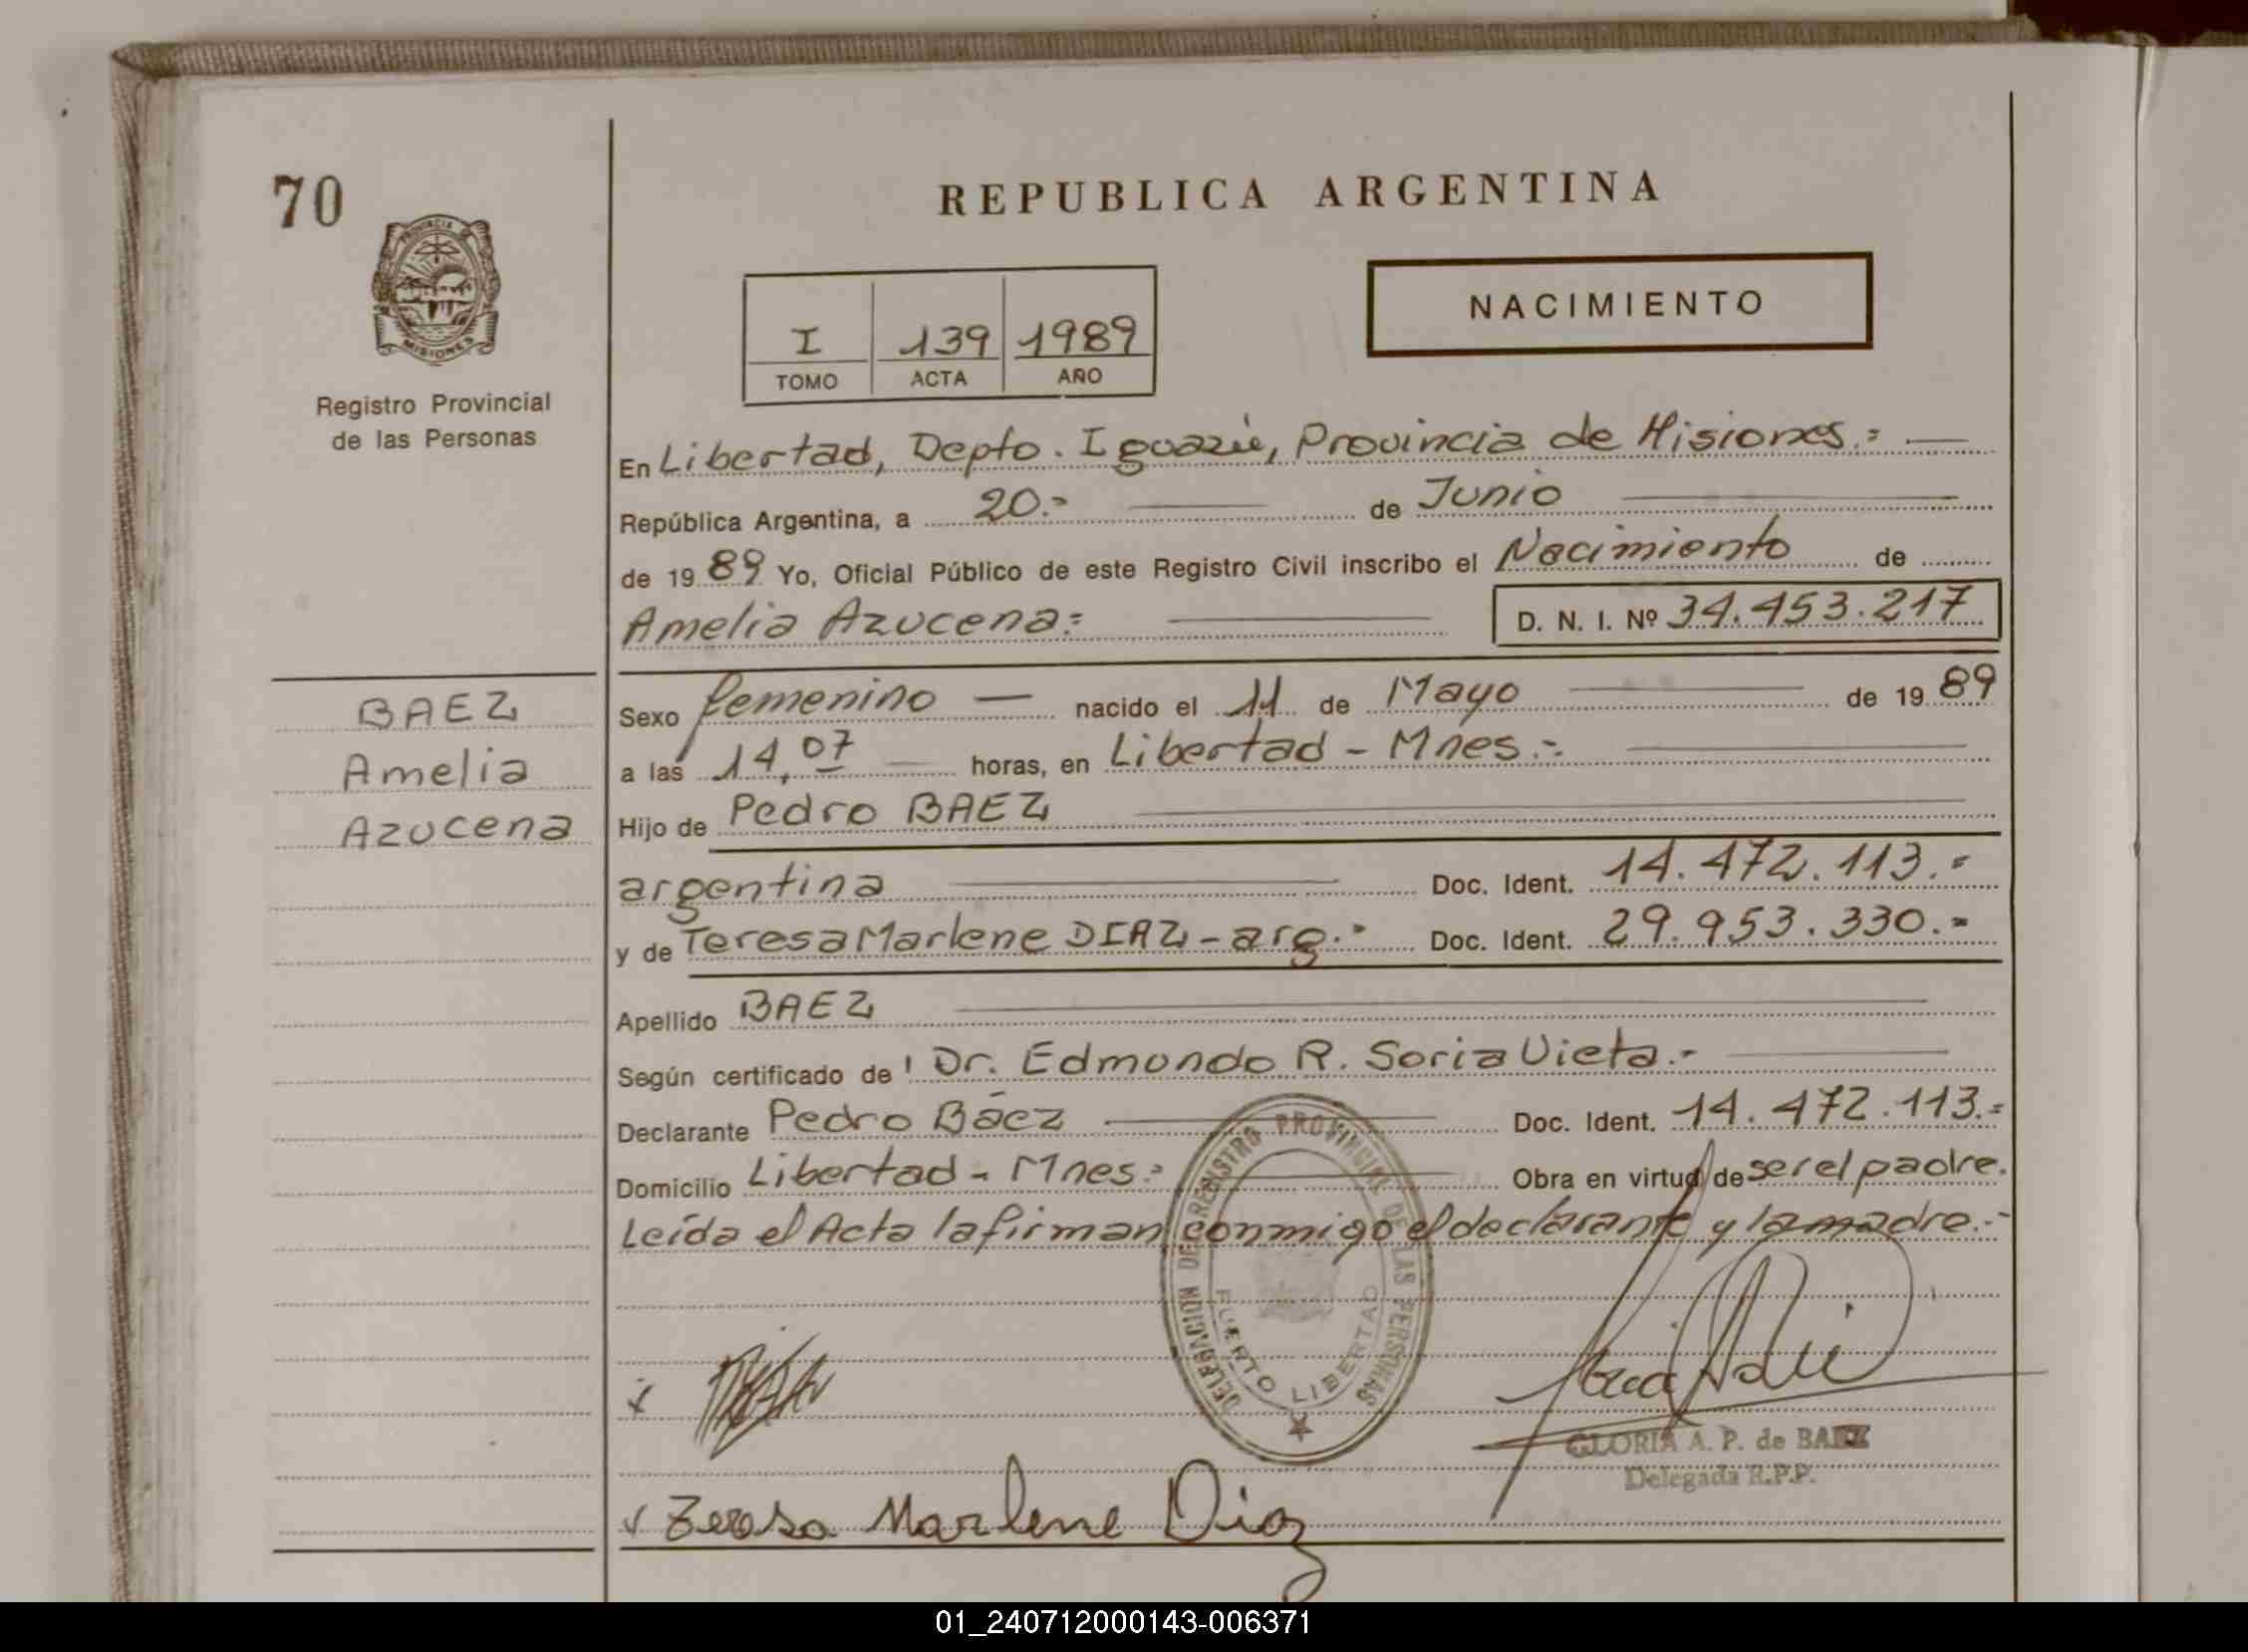 70
PROVINCIA DE
MISIONES
Registro Provincial
de las Personas
REPUBLICA ARGENTINA
I 139 1989
TOMO ACTA AÑO
NACIMIENTO
En Libertad, Depto. Iguazú, Provincia de Misiones.=
República Argentina, a 20.- de Junio
de 1989 Yo, Oficial Público de este Registro Civil inscribo el Nacimiento de
Amelia Azucena= D. N. I. Nº 34.453.217
BAEZ
Amelia
Azucena
Sexo femenino — nacido el 11 de Mayo de 1989
a las 14,07 horas, en Libertad - Mnes.-
Hijo de Pedro BAEZ
argentina Doc. Ident. 14.472.113.=
y de Teresa Marlene DIAZ - arg.- Doc. Ident. 29.953.330.=
Apellido BAEZ
Según certificado de Dr. Edmundo R. Soria Vieta.-
Declarante Pedro Báez Doc. Ident. 14.472.113.=
Domicilio Libertad - Mnes.= Obra en virtud de ser el padre.
Leída el Acta la firman conmigo el declarante y la madre.-
DELEGACION DE REGISTRO PROVINCIAL DE LAS PERSONAS
PUERTO LIBERTAD
GLORIA A. P. de BAEZ
Delegada R.P.P.
Teresa Marlene Diaz
01_240712000143-006371